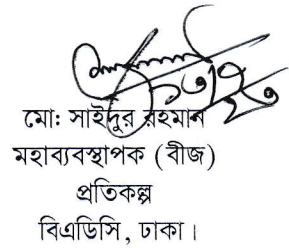 মো: সাইদুর রহমান
মহাব্যবস্থাপক (বীজ)
প্রতিকল্প
বিএডিসি, ঢাকা।